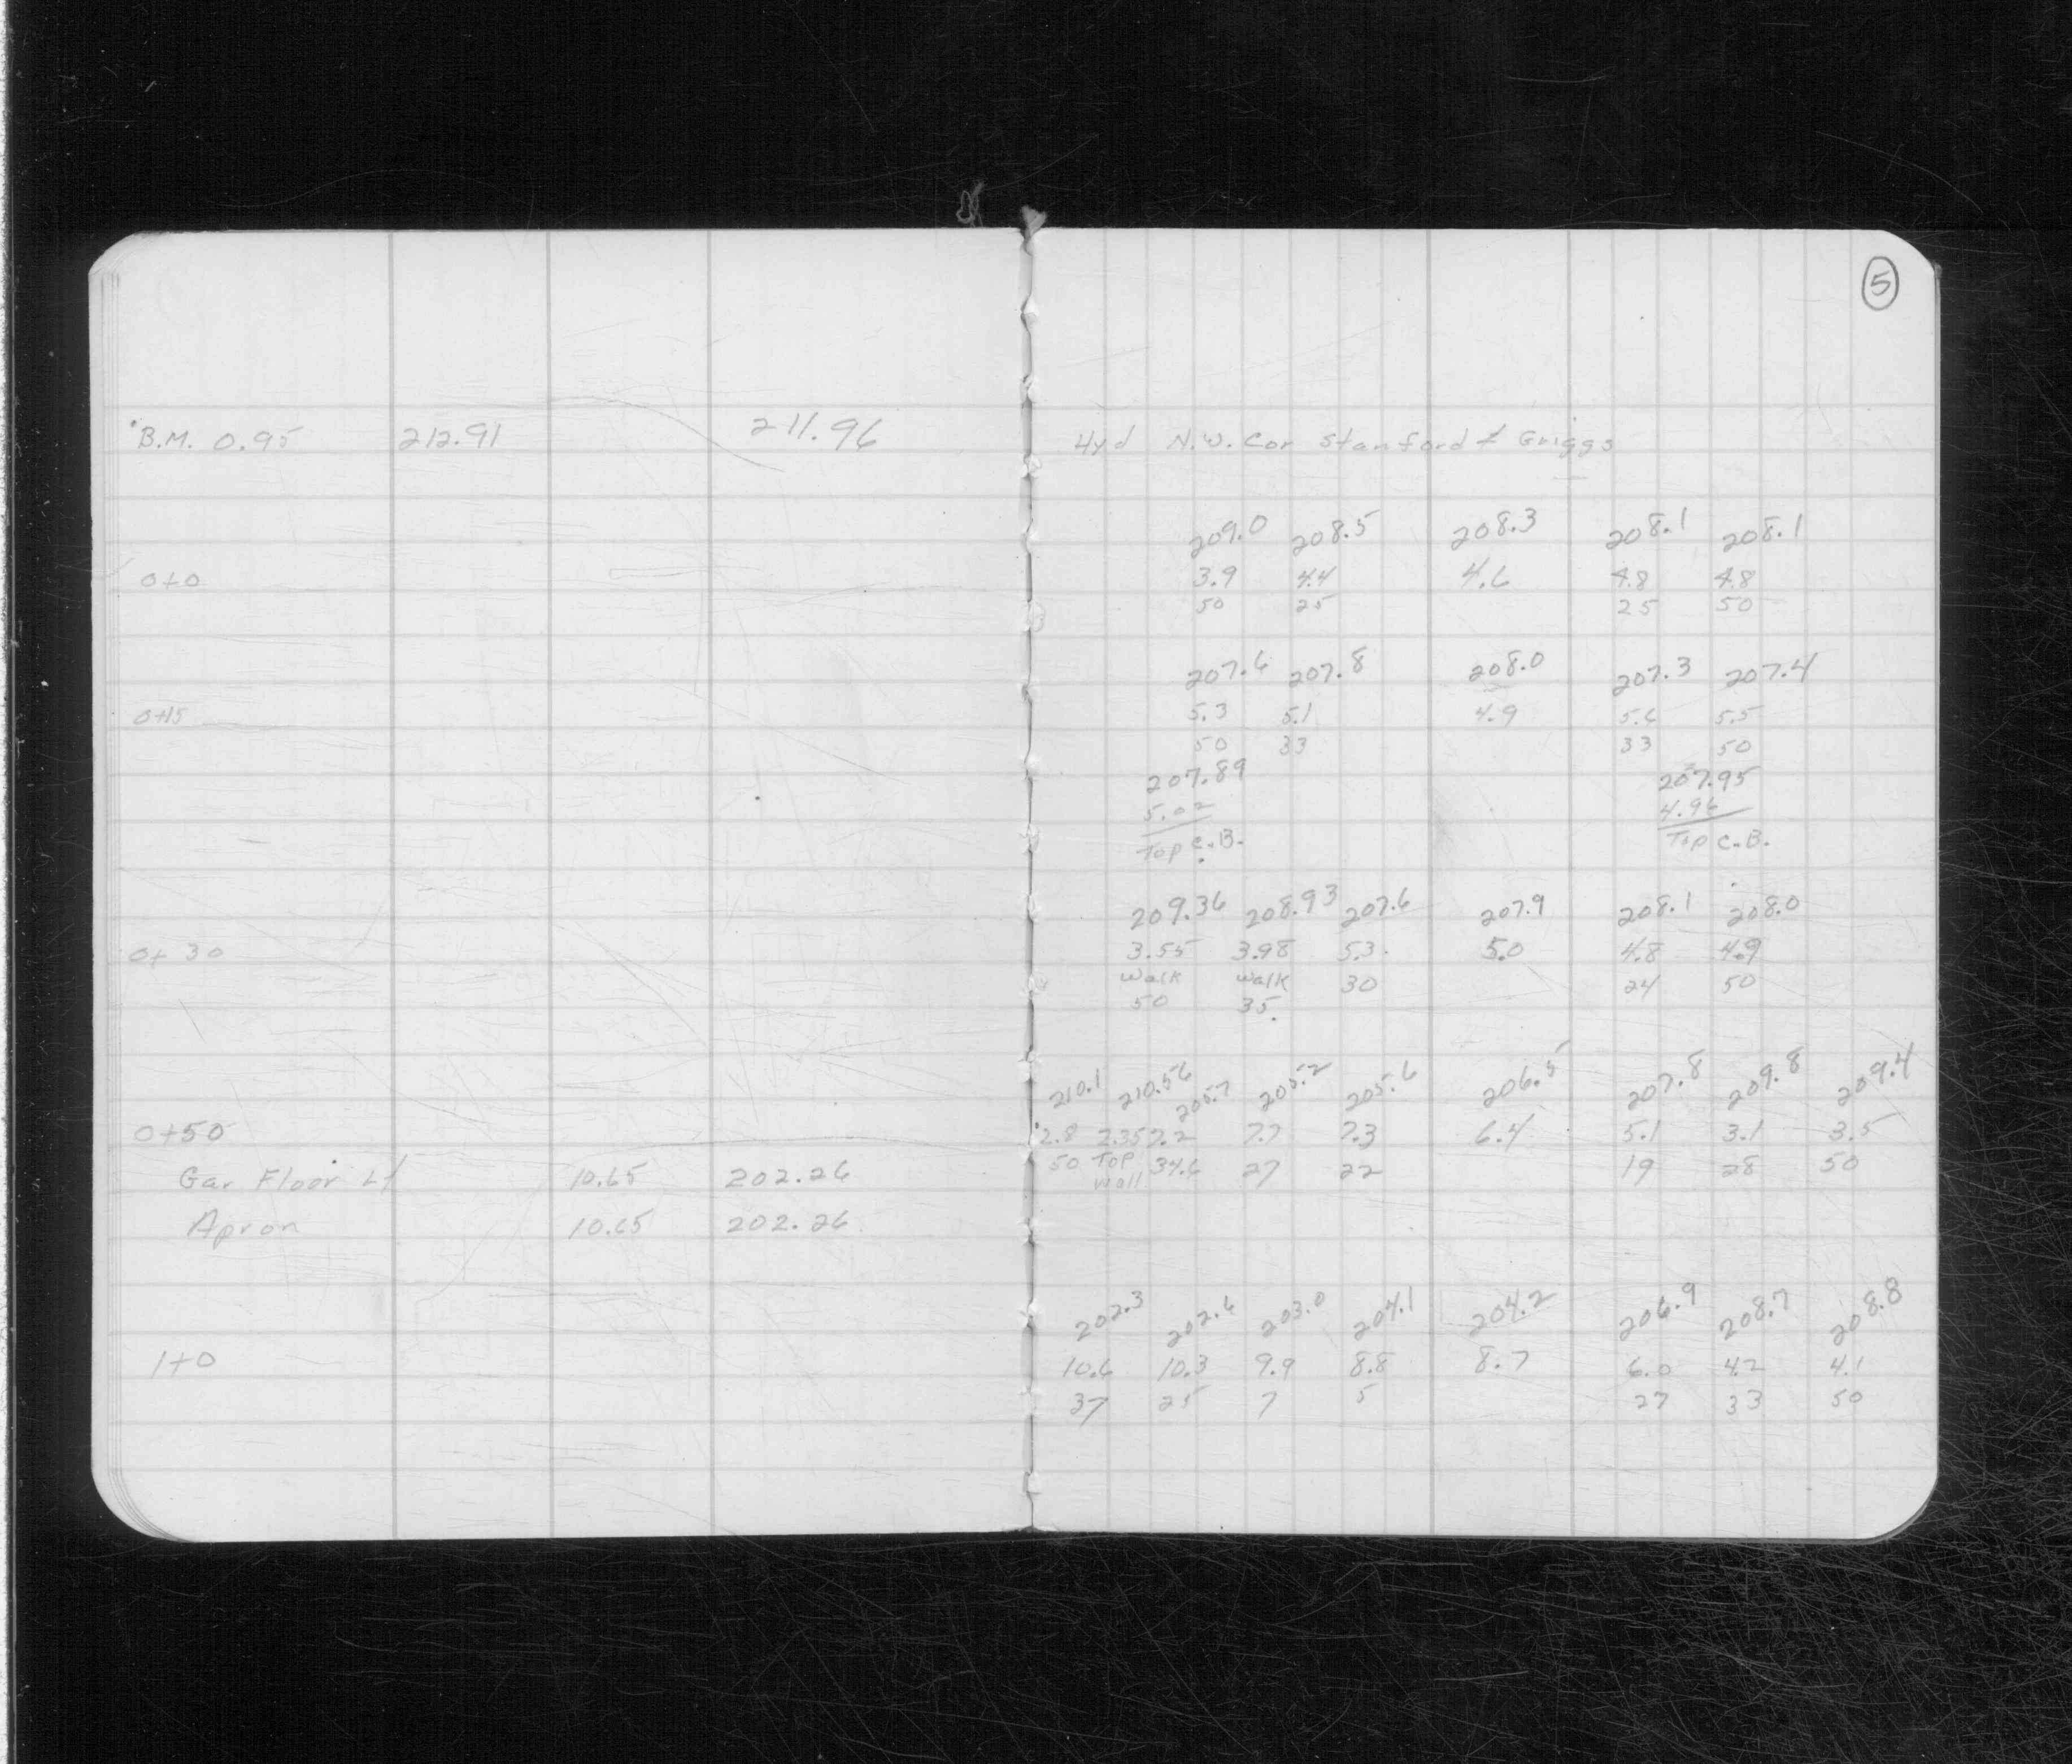 5
B.M. 0.95 212.91 211.96 Hyd N.W. Cor Stanford & Griggs
209.0 208.5 208.3 208.1 208.1
0+0 3.9 4.4 4.6 4.8 4.8
50 25 25 50
207.6 207.8 208.0 207.3 207.4
0+15 5.3 5.1 4.9 5.6 5.5
50 33 33 50
207.89 207.95
5.02 4.96
Top C.B. Top C.B.
209.36 208.93 207.6 207.9 208.1 208.0
0+30 3.55 3.98 5.3 5.0 4.8 4.9
Walk Walk 30 24 50
50 35
210.1 210.56 205.7 205.2 205.6 206.5 207.8 209.8 209.4
0+50 2.8 2.35 7.2 7.7 7.3 6.4 5.1 3.1 3.5
Gar Floor Lt 10.65 202.26 50 Top 34.6 27 22 19 28 50
Wall
Apron 10.65 202.26
202.3 202.6 203.0 204.1 204.2 206.9 208.7 208.8
1+0 10.6 10.3 9.9 8.8 8.7 6.0 4.2 4.1
37 25 7 5 27 33 50